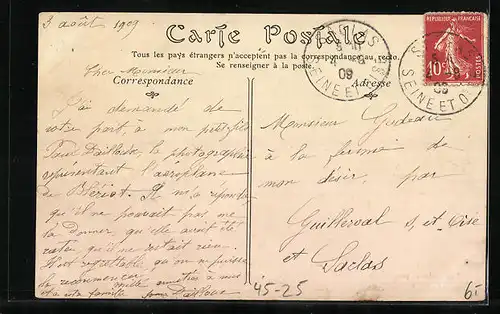 3 août 1909
Carte Postale
Tous les pays étrangers n'acceptent pas la correspondance au recto.
Se renseigner à la poste.
Correspondance
Adresse
Cher Monsieur
J'ai demandé de
votre part, à mon petit-fils
la photographie
représentant l'aéroplane
de Blériot. Il m'a répondu
qu'il ne pouvait pas me
la donner, qu'elle avait été
qu'il ne restait rien.
Il est regrettable qu'on ne puisse
la
mille amitiés à vous
et à la famille
Monsieur
à la ferme de
mon désir, par
Guillerval, S. et Oise
et Saclas
SACLAS
09
SEINE ET OISE
REPUBLIQUE FRANÇAISE
10c
POSTES
SEINE ET OISE
09
45-25
6,-